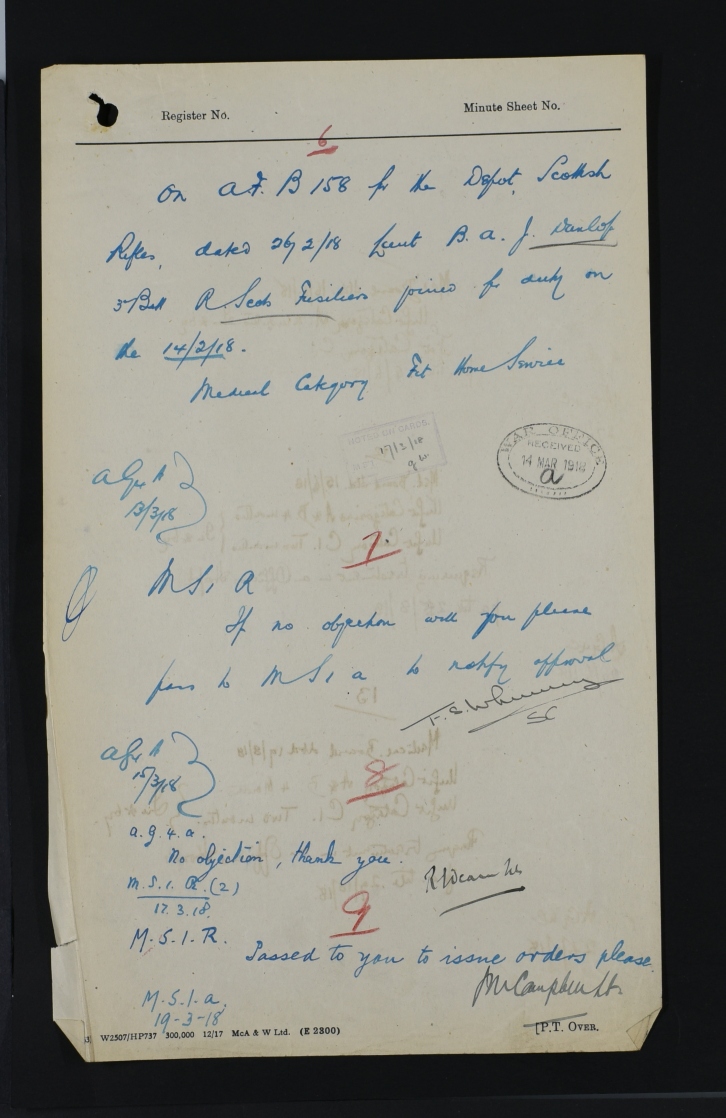 Register No.
Minute Sheet No.
6
On A.F. B 158 for the Depot, Scottish
Rifles, dated 26/2/18 Lieut B. A. J. Dunlop
3rd Batt R. Scots Fusiliers joined for duty on
the 14/2/18.
Medical Category Fit Home Service
NOTED ON CARDS
17/2/18
WAR OFFICE
RECEIVED
14 MAR 1918
a
13/3/18
7.
M S 1 R
If no objection will you please
pass to M S 1 a to notify approval
15/3/18
8
a.g.4.a.
No objection, thank you.
M.S.1.R.(2)
17.3.18.
9
M.S.1.R.
Passed to you to issue orders please.
M.S.1.a.
19-3-18
W2507/HP737 300,000 12/17 McA & W Ltd. (E 2300)
[P.T. OVER.